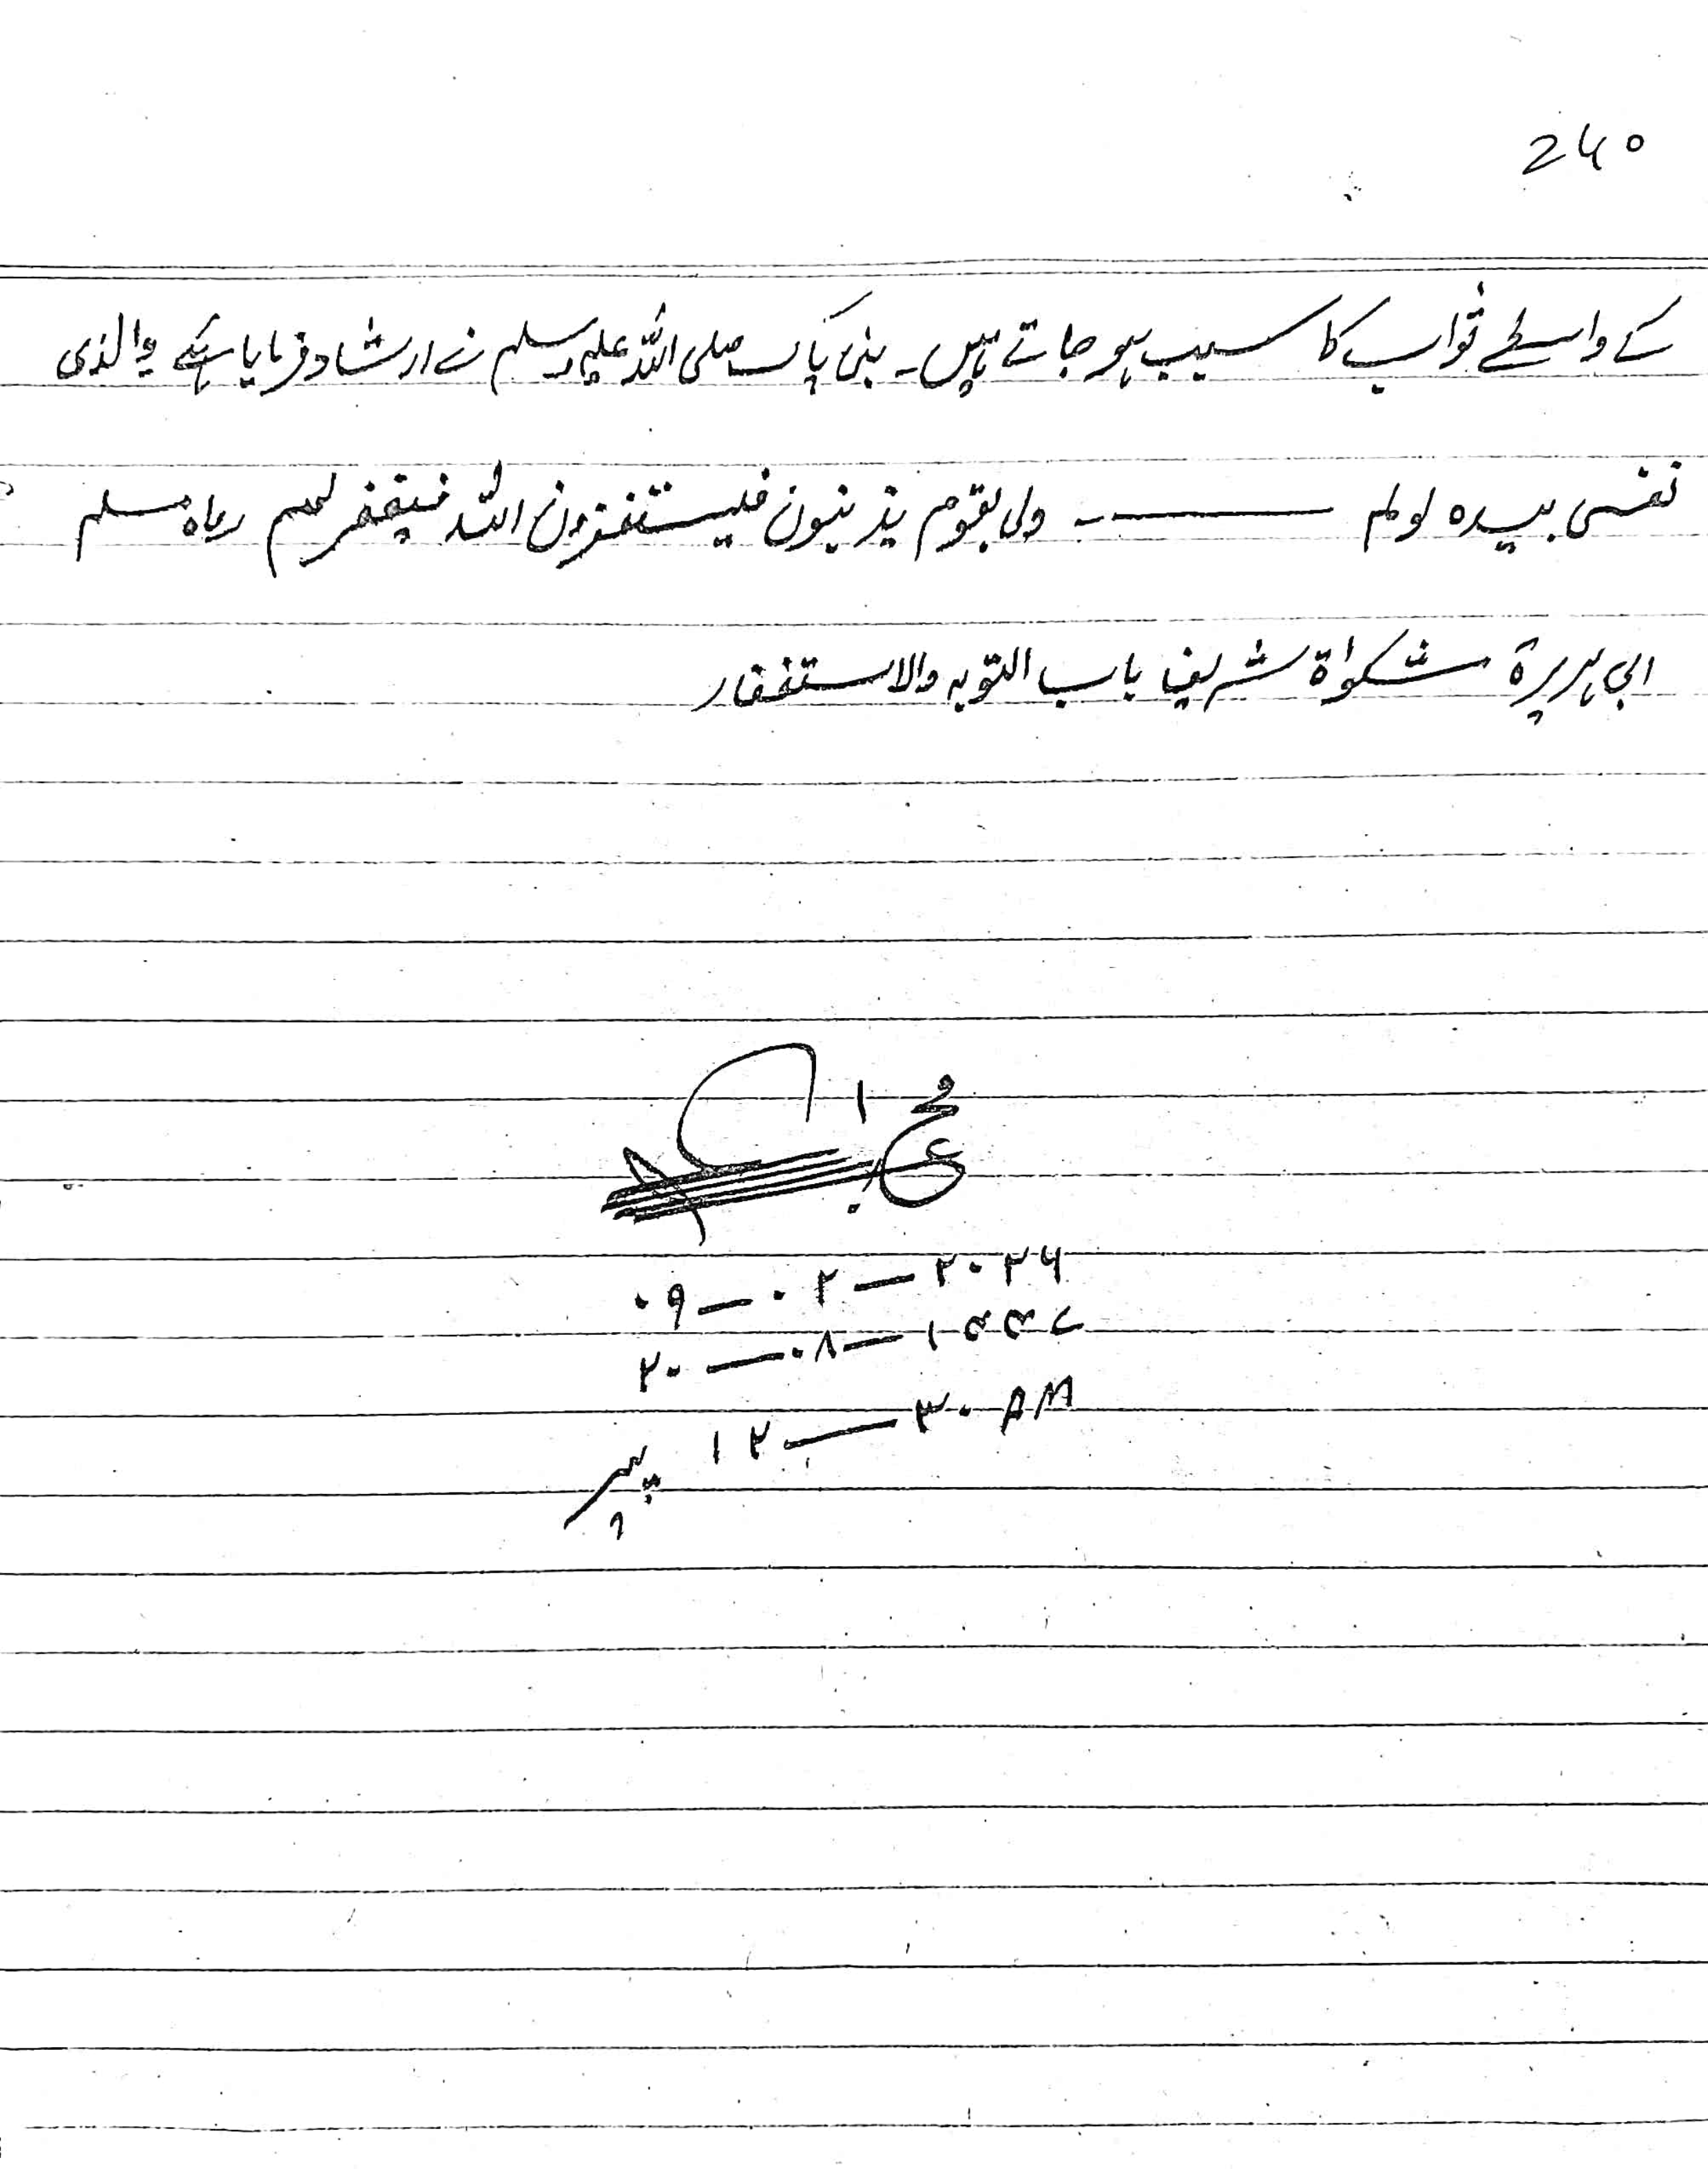 240
کے واسطے ثواب کا سبب ہو جاتے ہیں۔ نبی پاک صلی اللہ علیہ وسلم نے ارشاد فرمایا ہے والذی
نفسی بیدہ لو لم ——— ولی بقوم یذنبون فلیستغفرون اللہ فیغفر لھم رواہ مسلم
ابی ہریرۃ مشکواۃ شریف باب التوبہ والاستغفار
۰۹—۰۲—۲۰۲۶
۲۰—۰۸—۱۴۴۷
پیر ۱۲—۳۰ AM